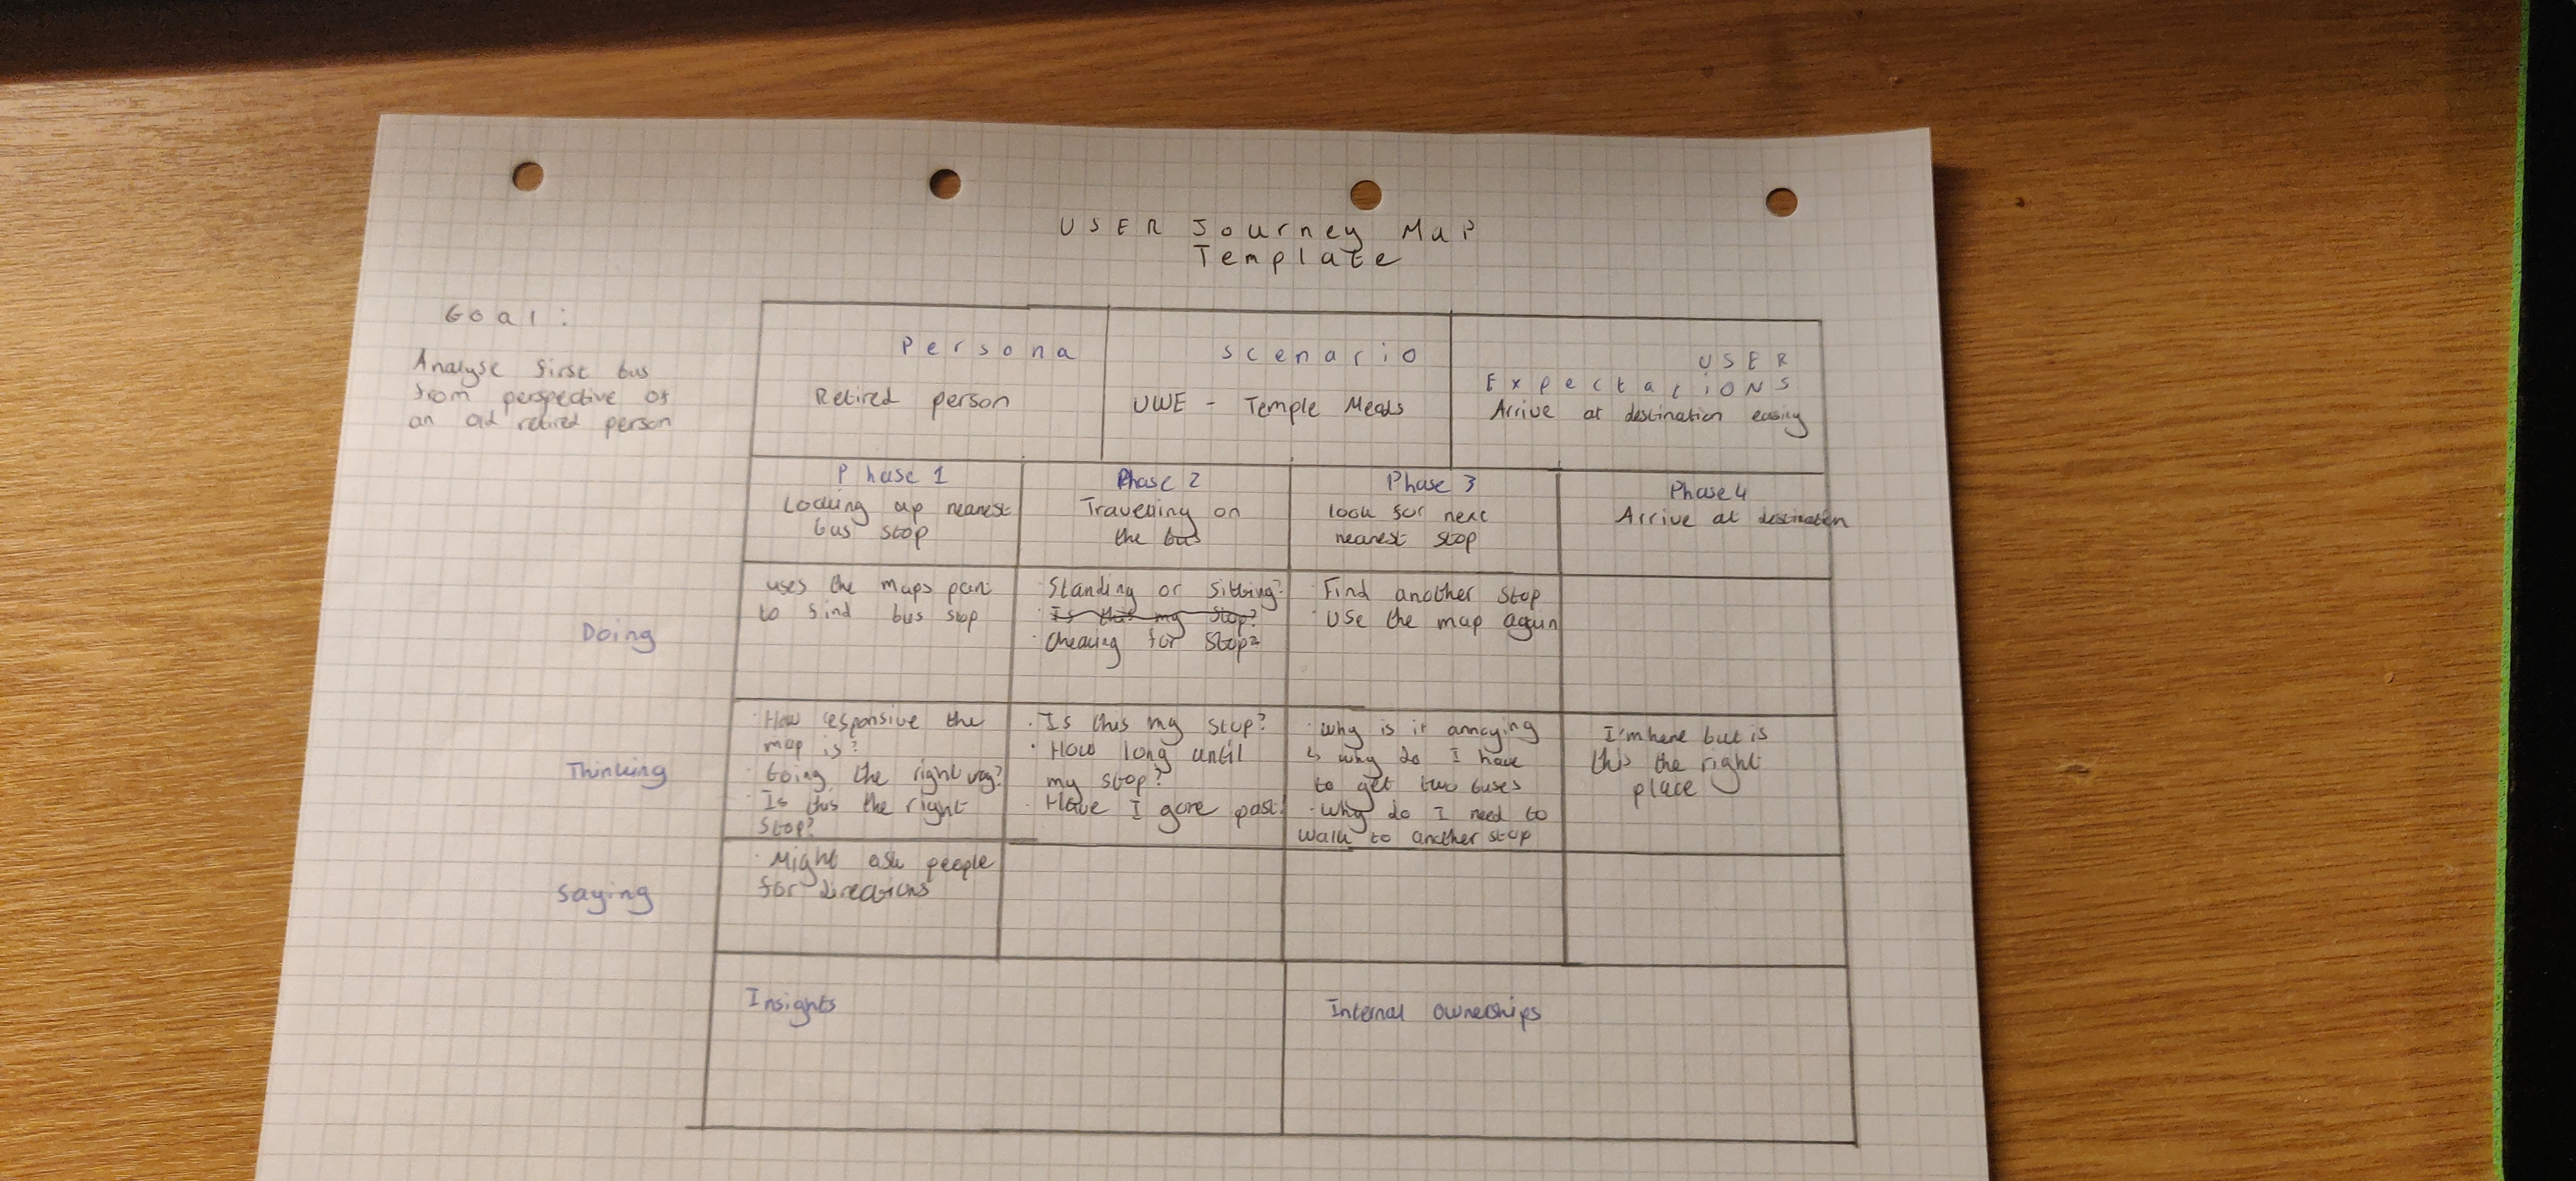 USER Journey Map
Template
Goal:
Analyse first bus
from perspective of
an old retired person
Persona
Retired person
Scenario
UWE - Temple Meads
USER
ExpectatiONS
Arrive at destination easily
Phase 1
Looking up nearest
bus stop
Phase 2
Travelling on
the bus
Phase 3
look for next
nearest stop
Phase 4
Arrive at destination
Doing
uses the maps part
to find bus stop
· Standing or sitting?
· Is this my stop?
· Checking for stop?
· Find another stop
· Use the map again
Thinking
· How responsive the
map is?
· Going the right way?
· Is this the right
stop?
· Is this my stop?
· How long until
my stop?
· Have I gone past?
· why is it annoying
↳ why do I have
to get two buses
· why do I need to
walk to another stop
I'm here but is
this the right
place
Saying
· Might ask people
for directions
Insights
Internal ownerships